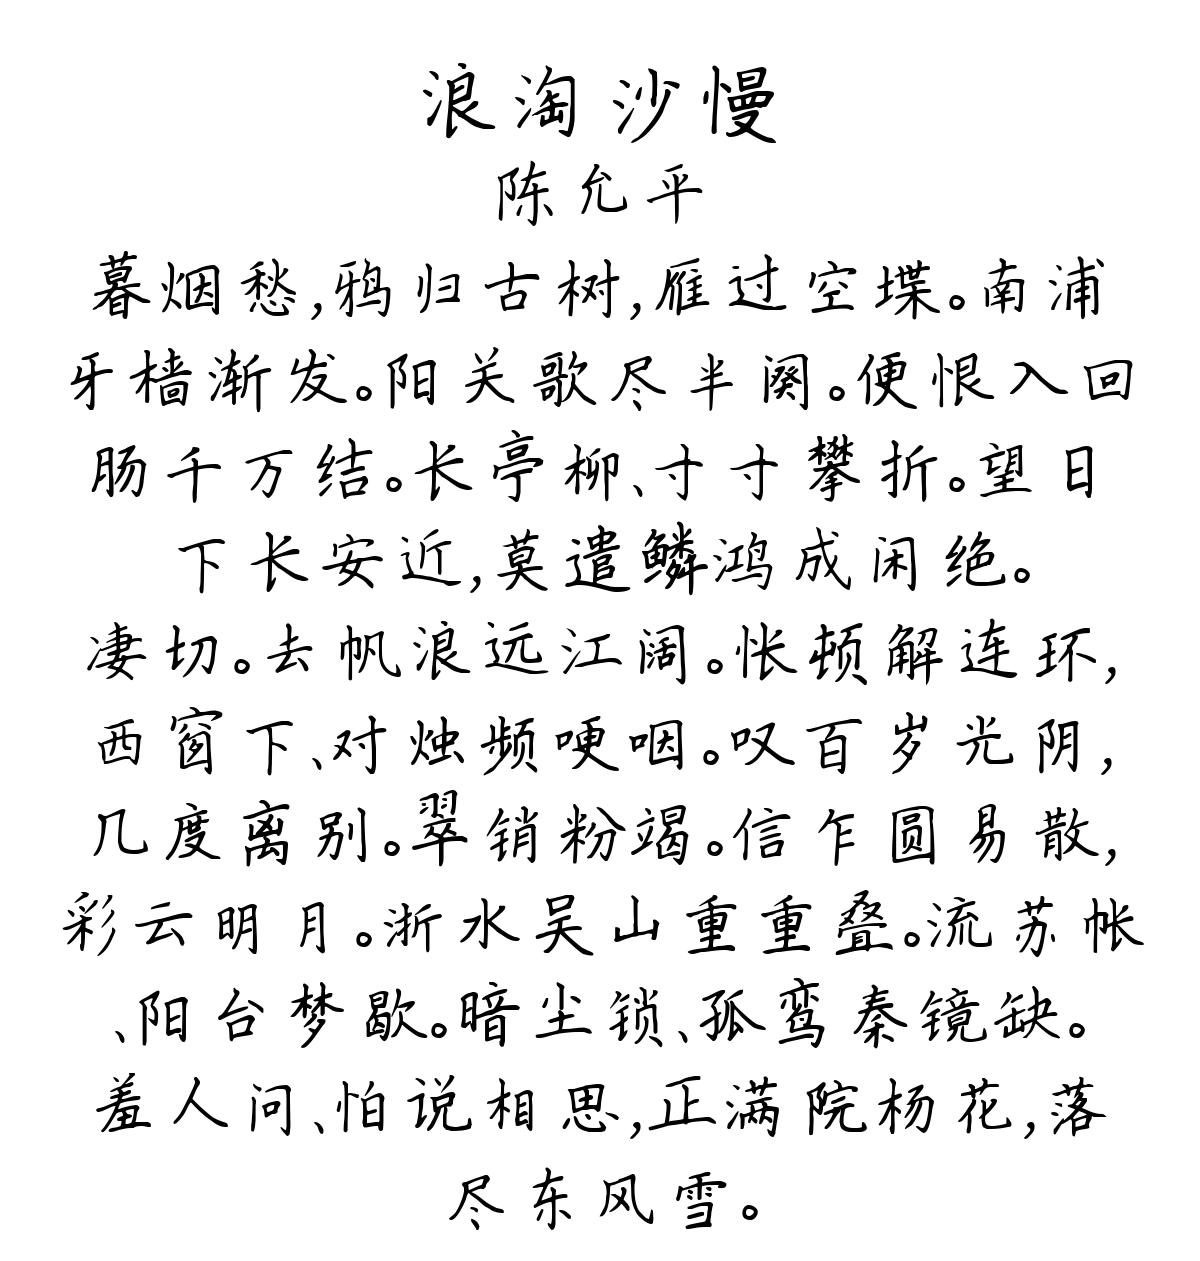 浪淘沙慢
陈允平
暮烟愁,鸦归古树,雁过空堞。南浦
牙樯渐发。阳关歌尽半阕。便恨入回
肠千万结。长亭柳、寸寸攀折。望日
下长安近,莫遣鳞鸿成闲绝。
凄切。去帆浪远江阔。怅顿解连环,
西窗下、对烛频哽咽。叹百岁光阴,
几度离别。翠销粉竭。信乍圆易散,
彩云明月。浙水吴山重重叠。流苏帐
、阳台梦歇。暗尘锁、孤鸾秦镜缺。
羞人问、怕说相思,正满院杨花,落
尽东风雪。